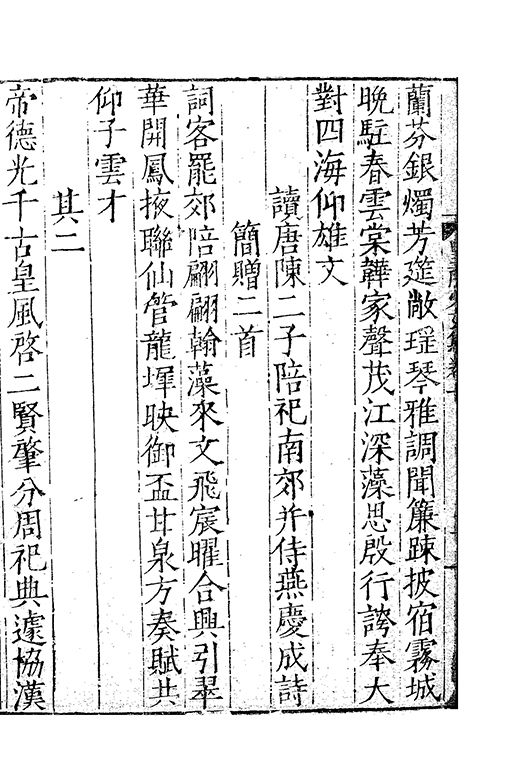 蘭芬銀燭芳筵敞瑶琴雅調聞簾踈披宿霧城
晚駐春雲棠韡家聲茂江深藻思殷行誇奉大
對四海仰雄文
讀唐陳二子陪祀南郊并侍燕慶成詩
簡贈二首
詞客罷郊陪翩翩翰藻來文飛宸曜合興引翠
華開鳳掖聯仙管龍墀映御盃甘泉方奏賦共
仰子雲才
其二
帝德光千古皇風啓二賢肇分周祀典遽協漢